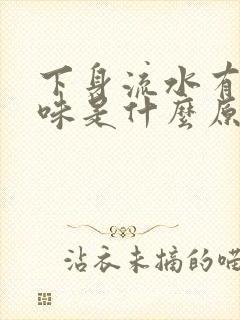 下身流水有
味是什麼原
沾衣未摘的喵